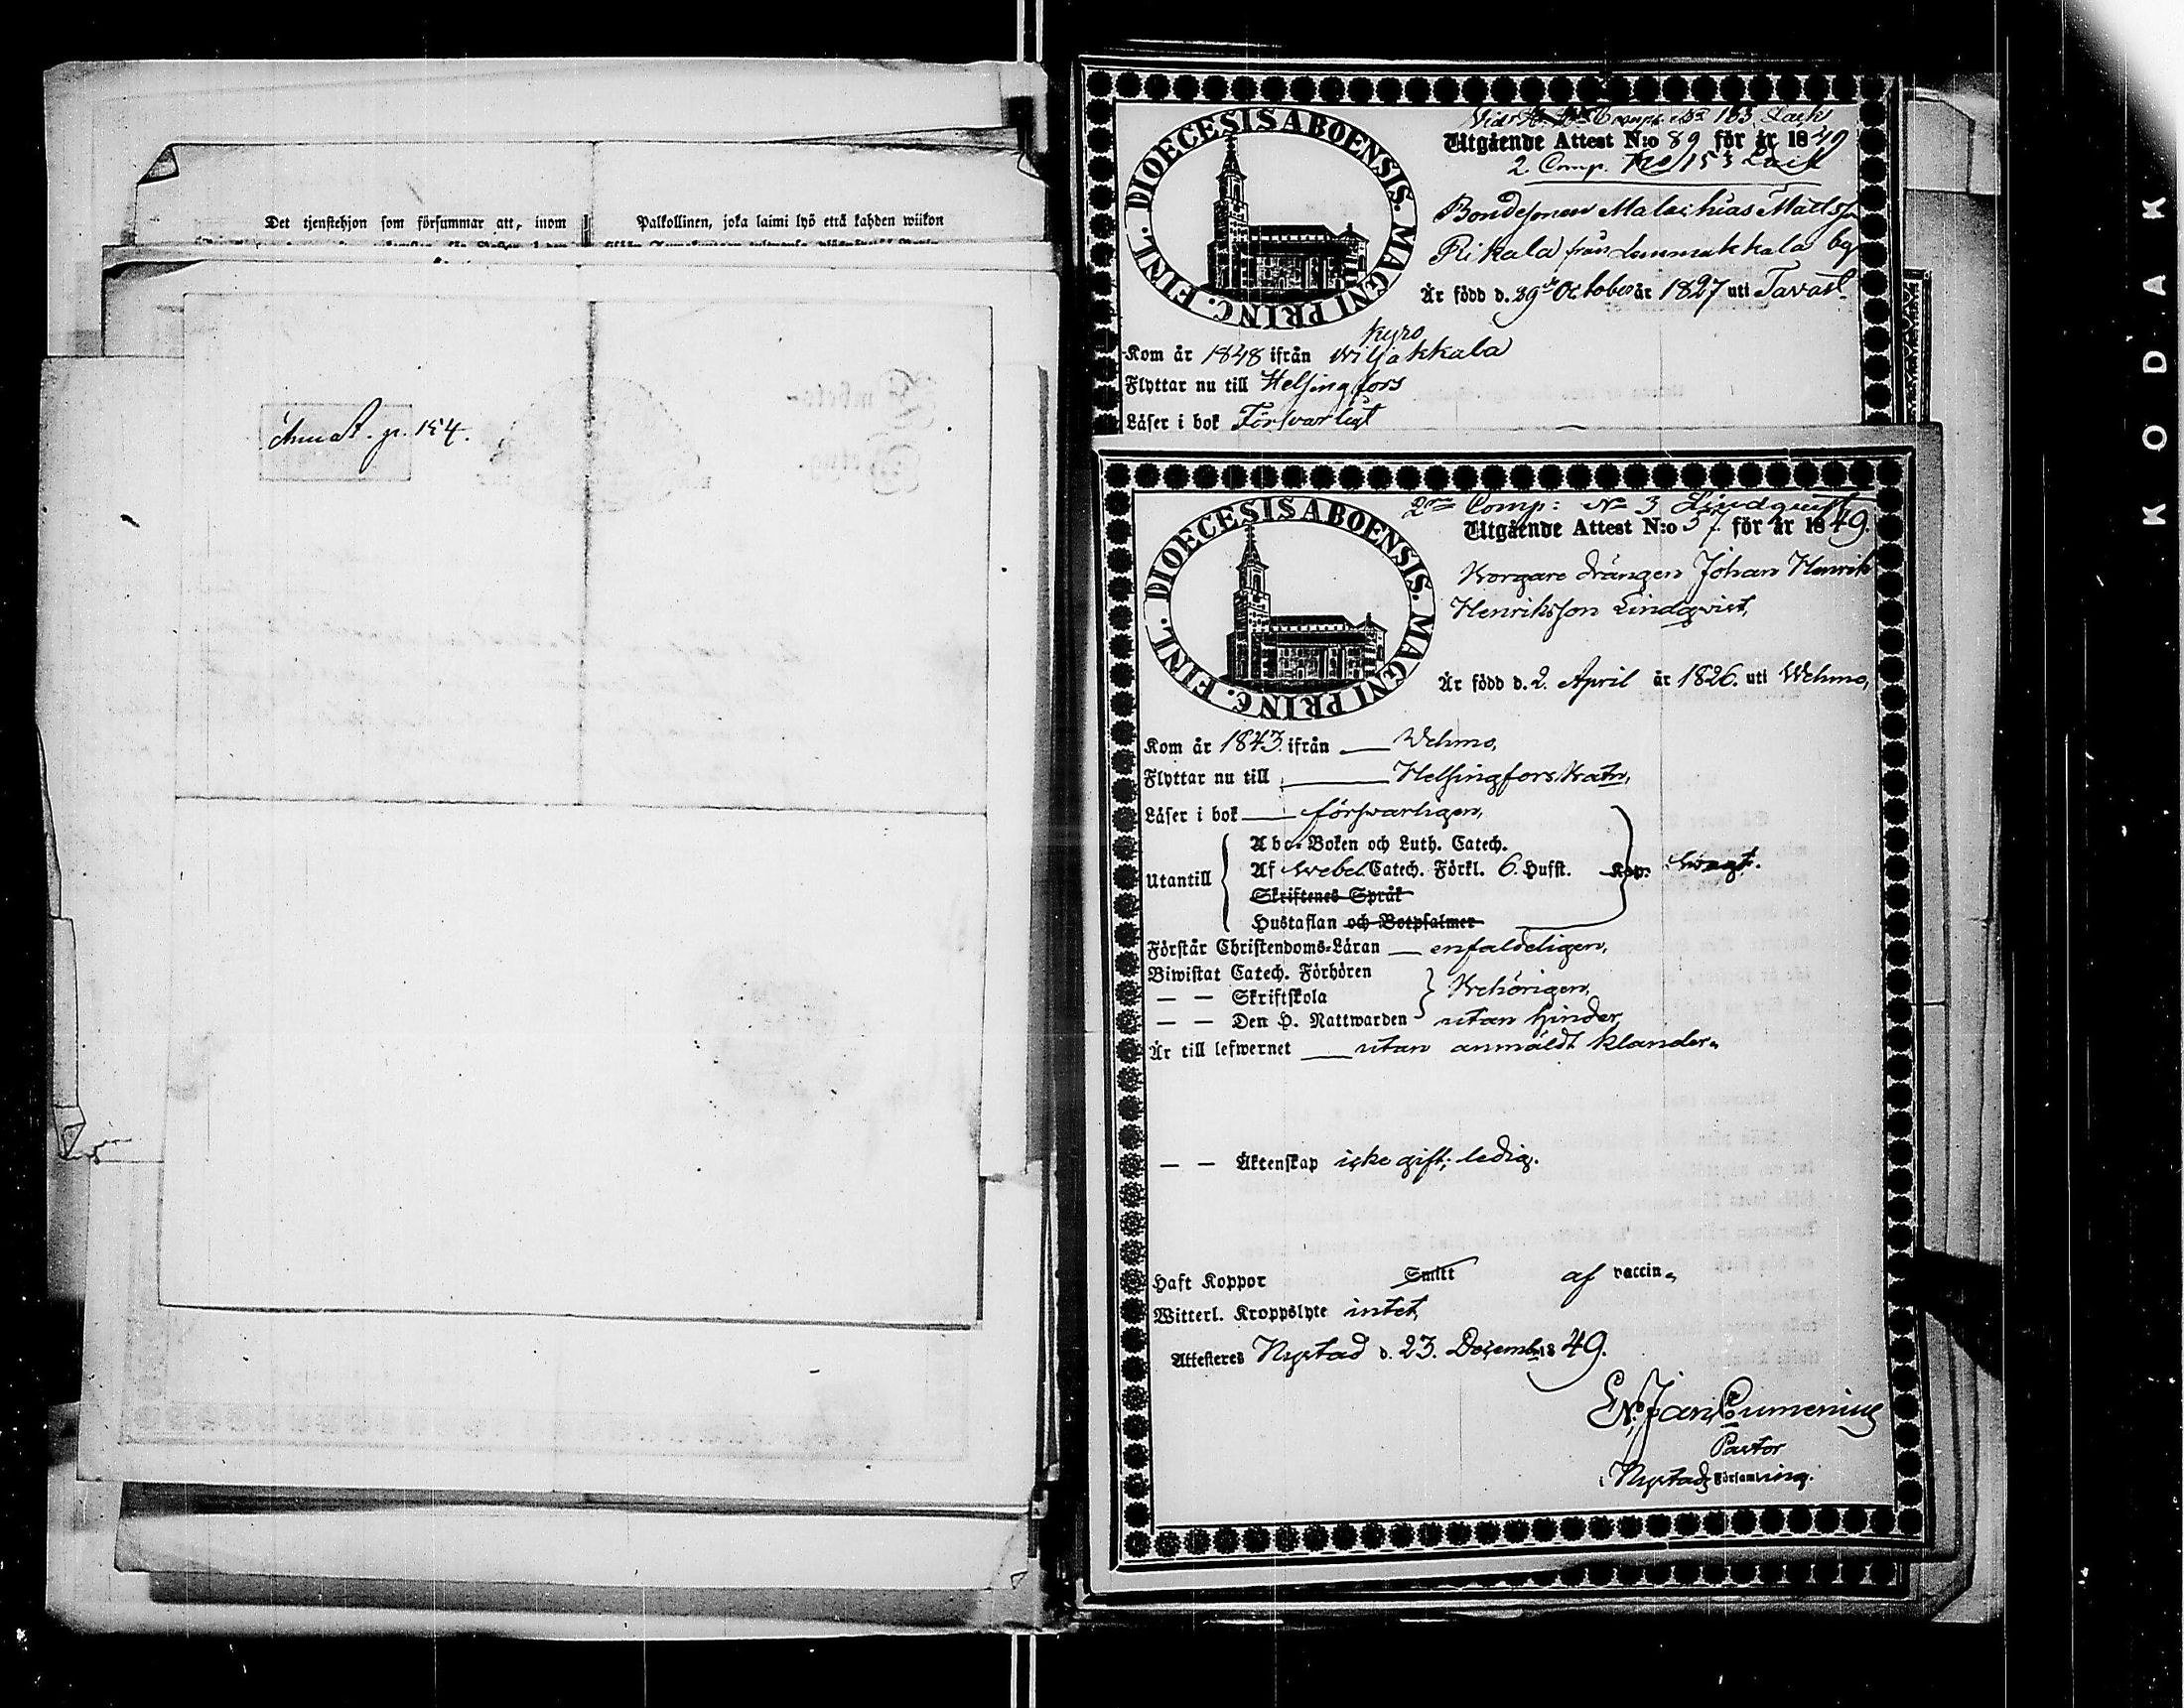 Det tjenstehjon som försummar att, inom
Palkollinen, joka laimi lyö että kahden wiikon
Amat. p. 154.
DIOECESIS ABOENSIS. MAGNI PRINC. FINL.
Utgående Attest N:o 89 för år 1849
2. Comp. No 153 Laik
Bondesonen Malachias Matts
Rikala från Lemmakkala by
Är född d. 29 October år 1827 uti Tavast
Kyro
Kom år 1848 ifrån Wiljakkala
Flyttar nu till Helsingfors
Läser i bok Försvarligt
2 Comp: No 3 Lindqvist
DIOECESIS ABOENSIS. MAGNI PRINC. FINL.
Utgående Attest N:o 57. för år 1849.
drängen Johan Henrik
Henriksson Lindqvist,
Är född d. 2. April år 1826. uti Wehmo,
Kom år 1843. ifrån Wehmo,
Flyttar nu till Helsingfors
Läser i bok försvarligen,
Utantill
Abc-Boken och Luth. Catech.
Af Svebel. Catech. Förkl. 6. Hufst.
Skriftenes Språk
Hustaflan och Botpsalmer
Förstår Christendoms-Läran enfaldeligen,
Biwistat Catech. Förhören
— — Skriftskola behörigen,
— — Den H. Nattwarden utan hinder
Är till lefwernet utan anmäldt klander.
— — Äktenskap icke gift; ledig.
Haft Koppor Smitt af vaccin.
Witterl. Kroppslyte intet,
Attesteres Nystad d. 23. Decemb. 1849.
Pastor
i Nystads Församling.
KODAK